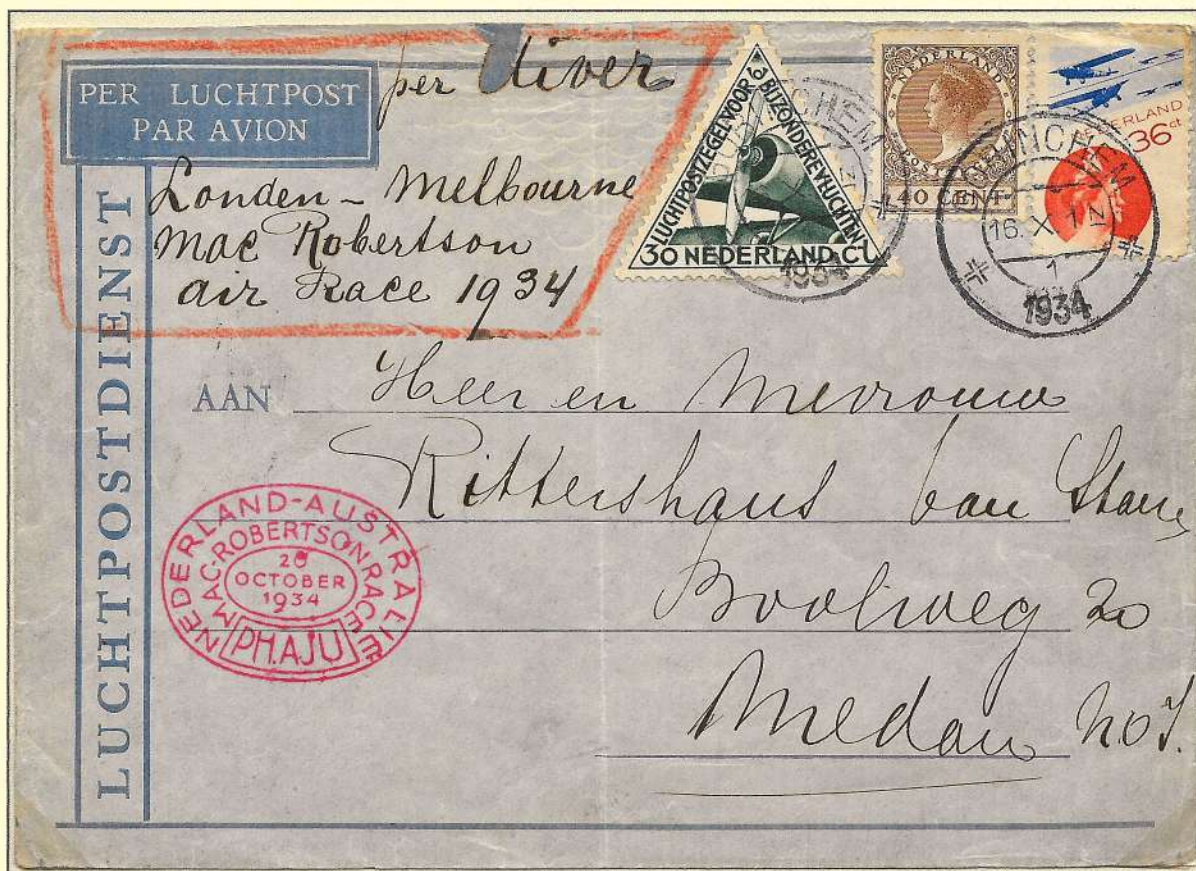 PER LUCHTPOST
PAR AVION
per Uiver
Londen - Melbourne
Mac Robertson
air Race 1934
LUCHTPOSTDIENST
LUCHTPOSTZEGEL VOOR BIJZONDERE VLUCHTEN
30 NEDERLAND Ct
1934
NEDERLAND
40 CENT
NEDERLAND
36 ct
GORINCHEM
16.X
1
1934
AAN Heer en Mevrouw
Rittershaus van
20
Medan N.O.I.
NEDERLAND-AUSTRALIE
MAC-ROBERTSONRACE
20
OCTOBER
1934
PH.AJU